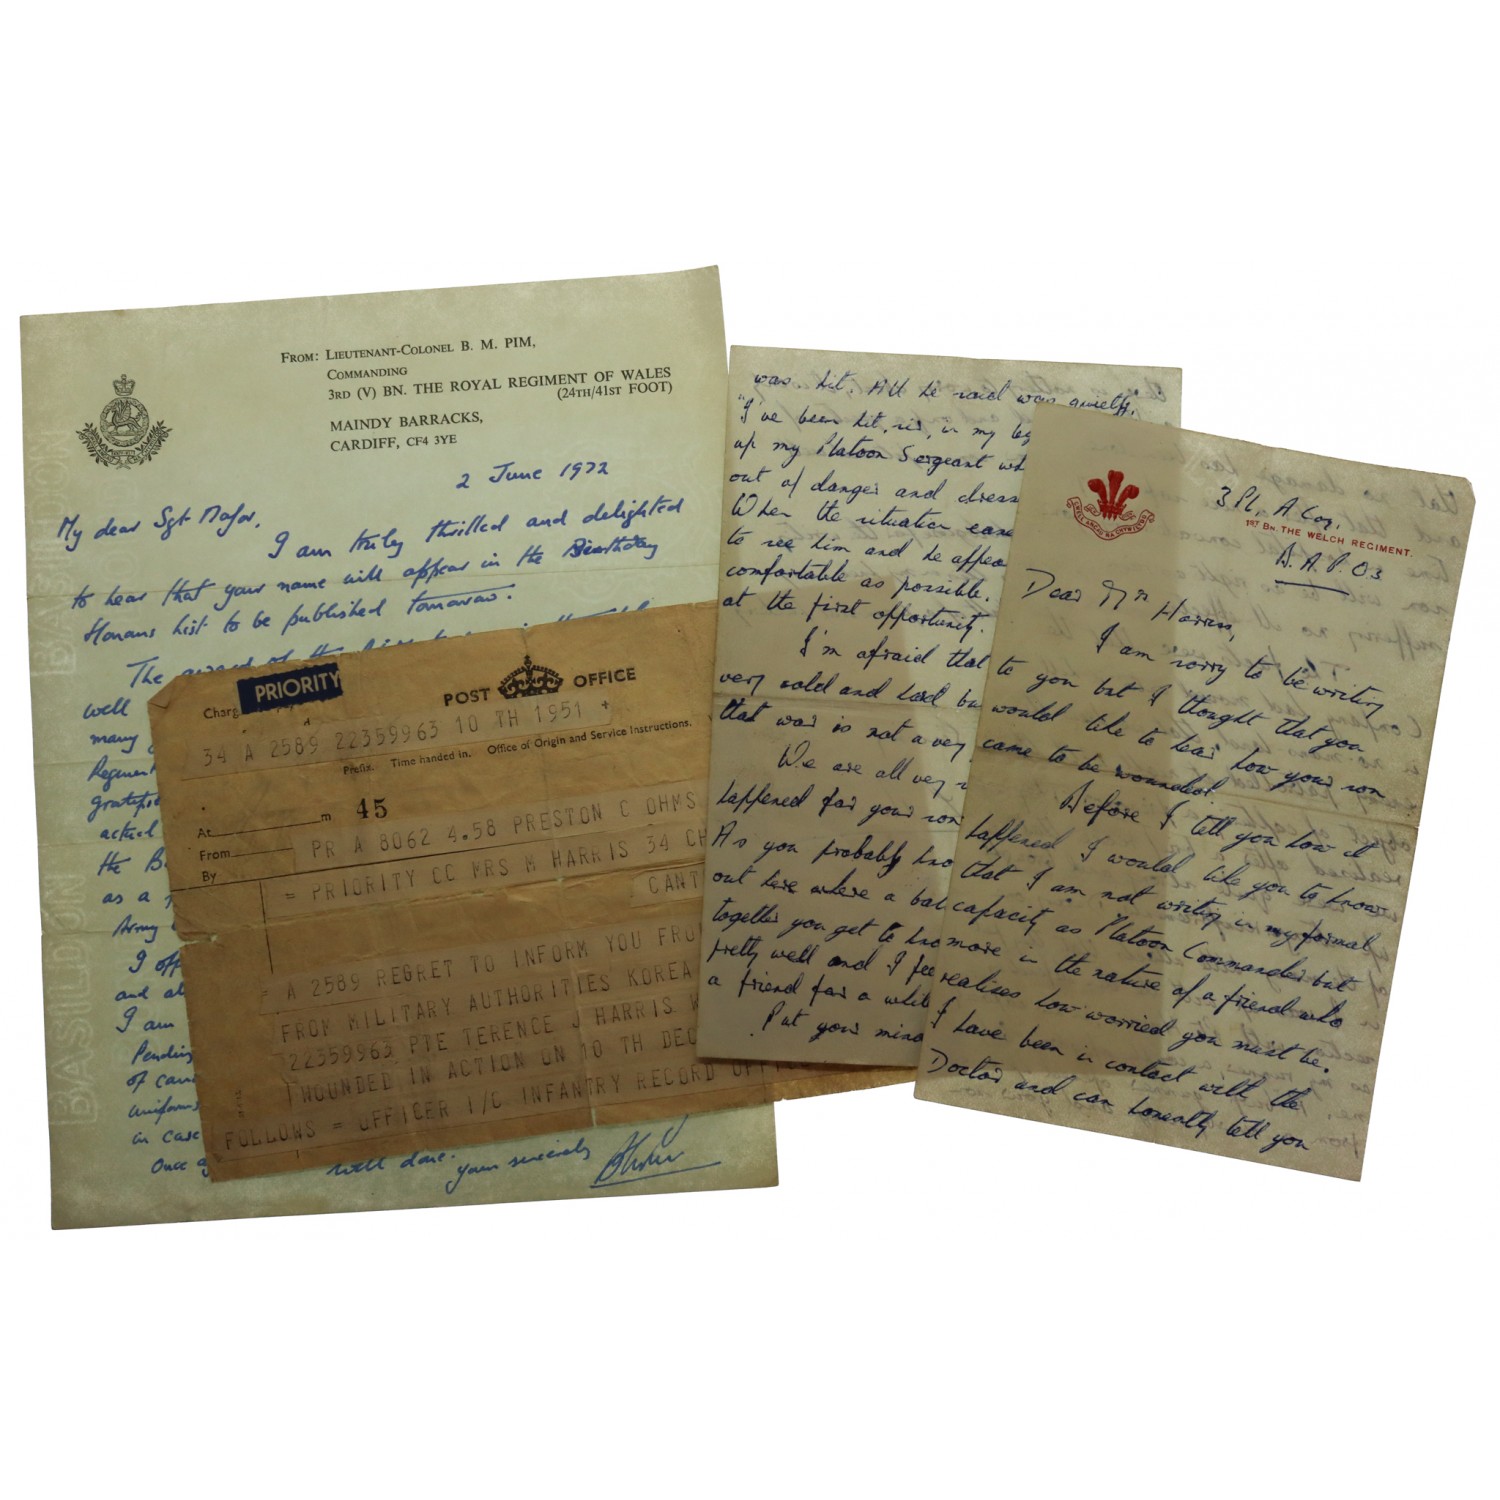 FROM: LIEUTENANT-COLONEL B. M. PIM,
COMMANDING
3RD (V) BN. THE ROYAL REGIMENT OF WALES
(24TH/41ST FOOT)
MAINDY BARRACKS,
CARDIFF, CF4 3YE
2 June 1972
My dear Sgt Major,
I am truly thrilled and delighted
to hear that your name will appear in the Birthday
Honours list to be published tomorrow.
The award of the
well
many
Regiment
gratif
actual
the B
as a
Army
I off
and al
I am
Pending
of can
uniforms
in case
Once a
well done.
yours sincerely
BASILDON BOND
PRIORITY
POST OFFICE
Charg
34 A 2589 22359963 10 TH 1951 +
Prefix. Time handed in. Office of Origin and Service Instructions.
m 45
At
From
By
PR A 8062 4.58 PRESTON C OHMS
= PRIORITY CC MRS M HARRIS 34 CH
CANT
= A 2589 REGRET TO INFORM YOU FRO
FROM MILITARY AUTHORITIES KOREA
22359963 PTE TERENCE J HARRIS W
WOUNDED IN ACTION ON 10 TH DEC
FOLLOWS = OFFICER I/C INFANTRY RECORD OFFI
was hit. All he said was quietly,
"I've been hit, sir, in my leg
up my Platoon Sergeant wh
out of danger and dress
When the situation ease
to see him and he appea
comfortable as possible.
at the first opportunity.
I'm afraid that
very cold and hard bu
that war is not a very
We are all very
happened for your son
As you probably kno
out here where a bat
together you get to kno
pretty well and I fee
a friend for a whil
Put your mind
3 Pl, A Coy,
1ST BN. THE WELCH REGIMENT.
B.A.P.O 3
Dear Mrs Harris,
I am sorry to be writing
to you but I thought that you
would like to hear how your son
came to be wounded.
Before I tell you how it
happened I would like you to know
that I am not writing in my formal
capacity as Platoon Commander but
more in the nature of a friend who
realises how worried you must be.
I have been in contact with the
Doctor and can honestly tell you